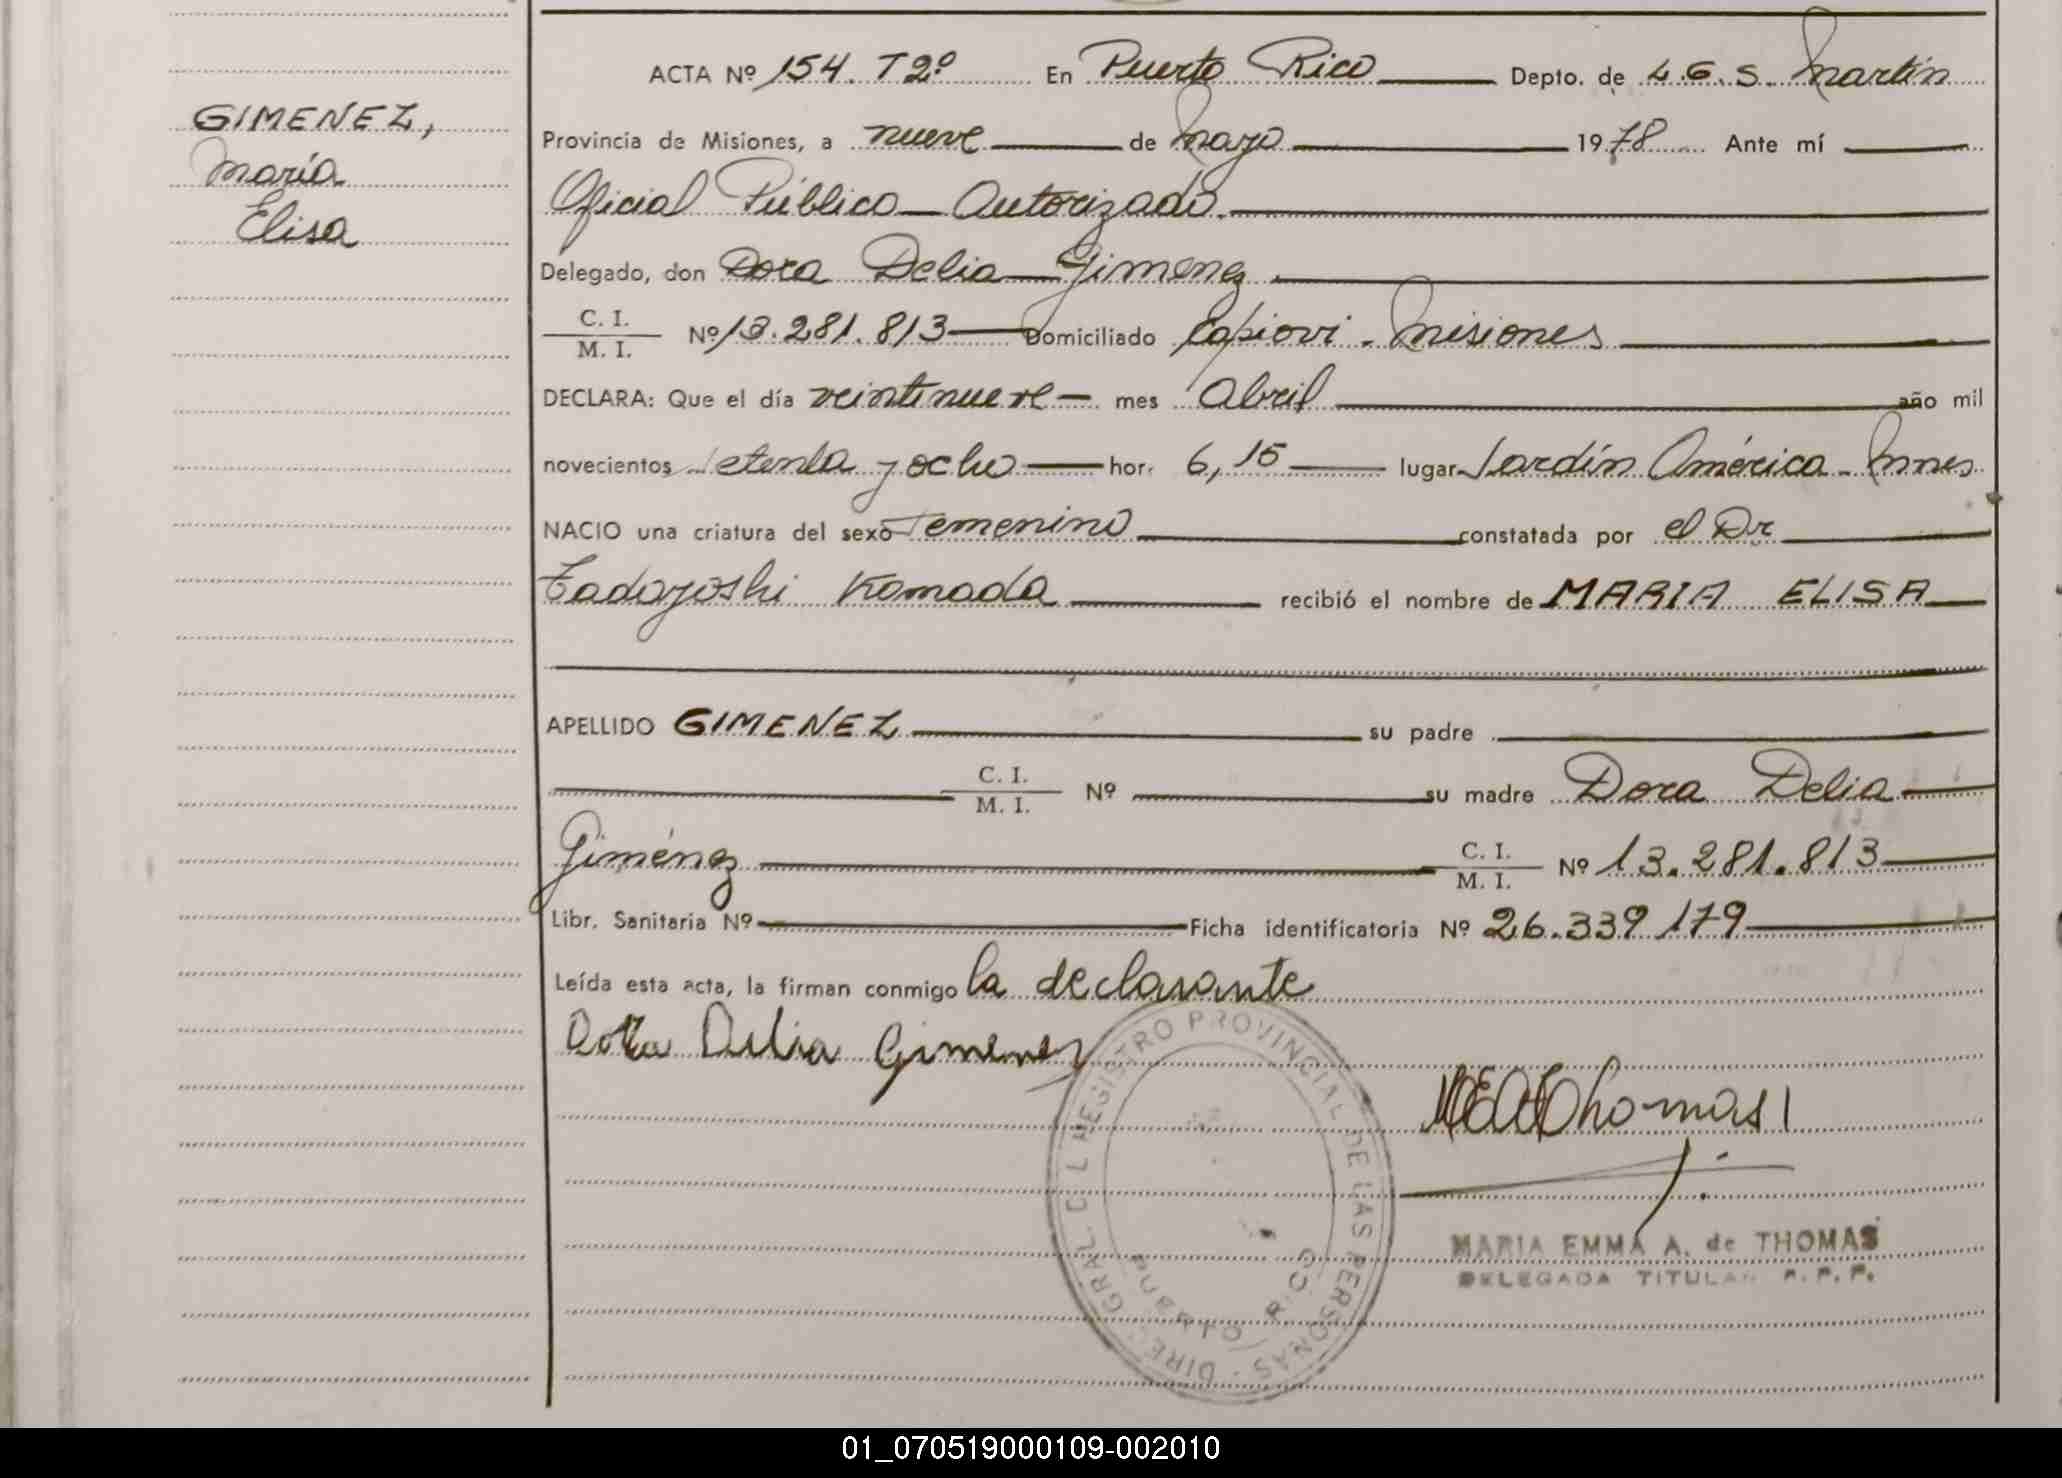 GIMENEZ,
María
Elisa
ACTA Nº 154. T2º En Puerto Rico Depto. de L.G.S. Martín
Provincia de Misiones, a nueve de Mayo 1978 Ante mí
Oficial Público Autorizado.
Delegado, don Dora Delia Gimenez
C. I. / M. I. Nº 13.281.813 Domiciliado Capiovi - Misiones
DECLARA: Que el día veintinueve mes Abril año mil
novecientos Setenta y ocho hor. 6,15 lugar Jardín América - Mnes
NACIO una criatura del sexo Femenino constatada por el Dr
Tadayoshi Komada recibió el nombre de MARIA ELISA
APELLIDO GIMENEZ su padre
C. I. / M. I. Nº su madre Dora Delia
Giménez C. I. / M. I. Nº 13.281.813
Libr. Sanitaria Nº Ficha identificatoria Nº 26.339.179
Leída esta acta, la firman conmigo la declarante
Dora Delia Gimenez
MEAThomas
MARIA EMMA A. de THOMAS
DELEGADA TITULAR R. P. P.
DIREC. GRAL. DEL REGISTRO PROVINCIAL DE LAS PERSONAS
PUERTO RICO
01_070519000109-002010